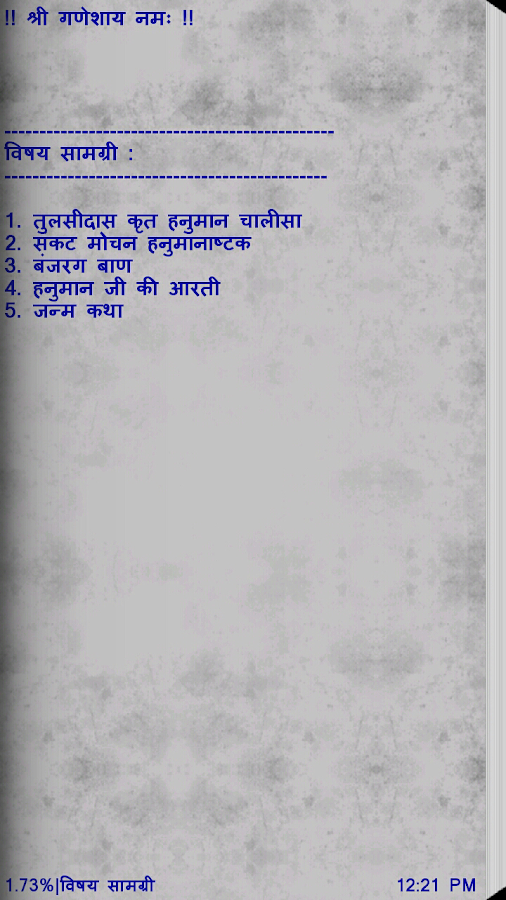 !! श्री गणेशाय नमः !!
-----------------------------------------------
विषय सामग्री :
----------------------------------------------
1. तुलसीदास कृत हनुमान चालीसा
2. संकट मोचन हनुमानाष्टक
3. बंजरग बाण
4. हनुमान जी की आरती
5. जन्म कथा
1.73%|विषय सामग्री 12:21 PM